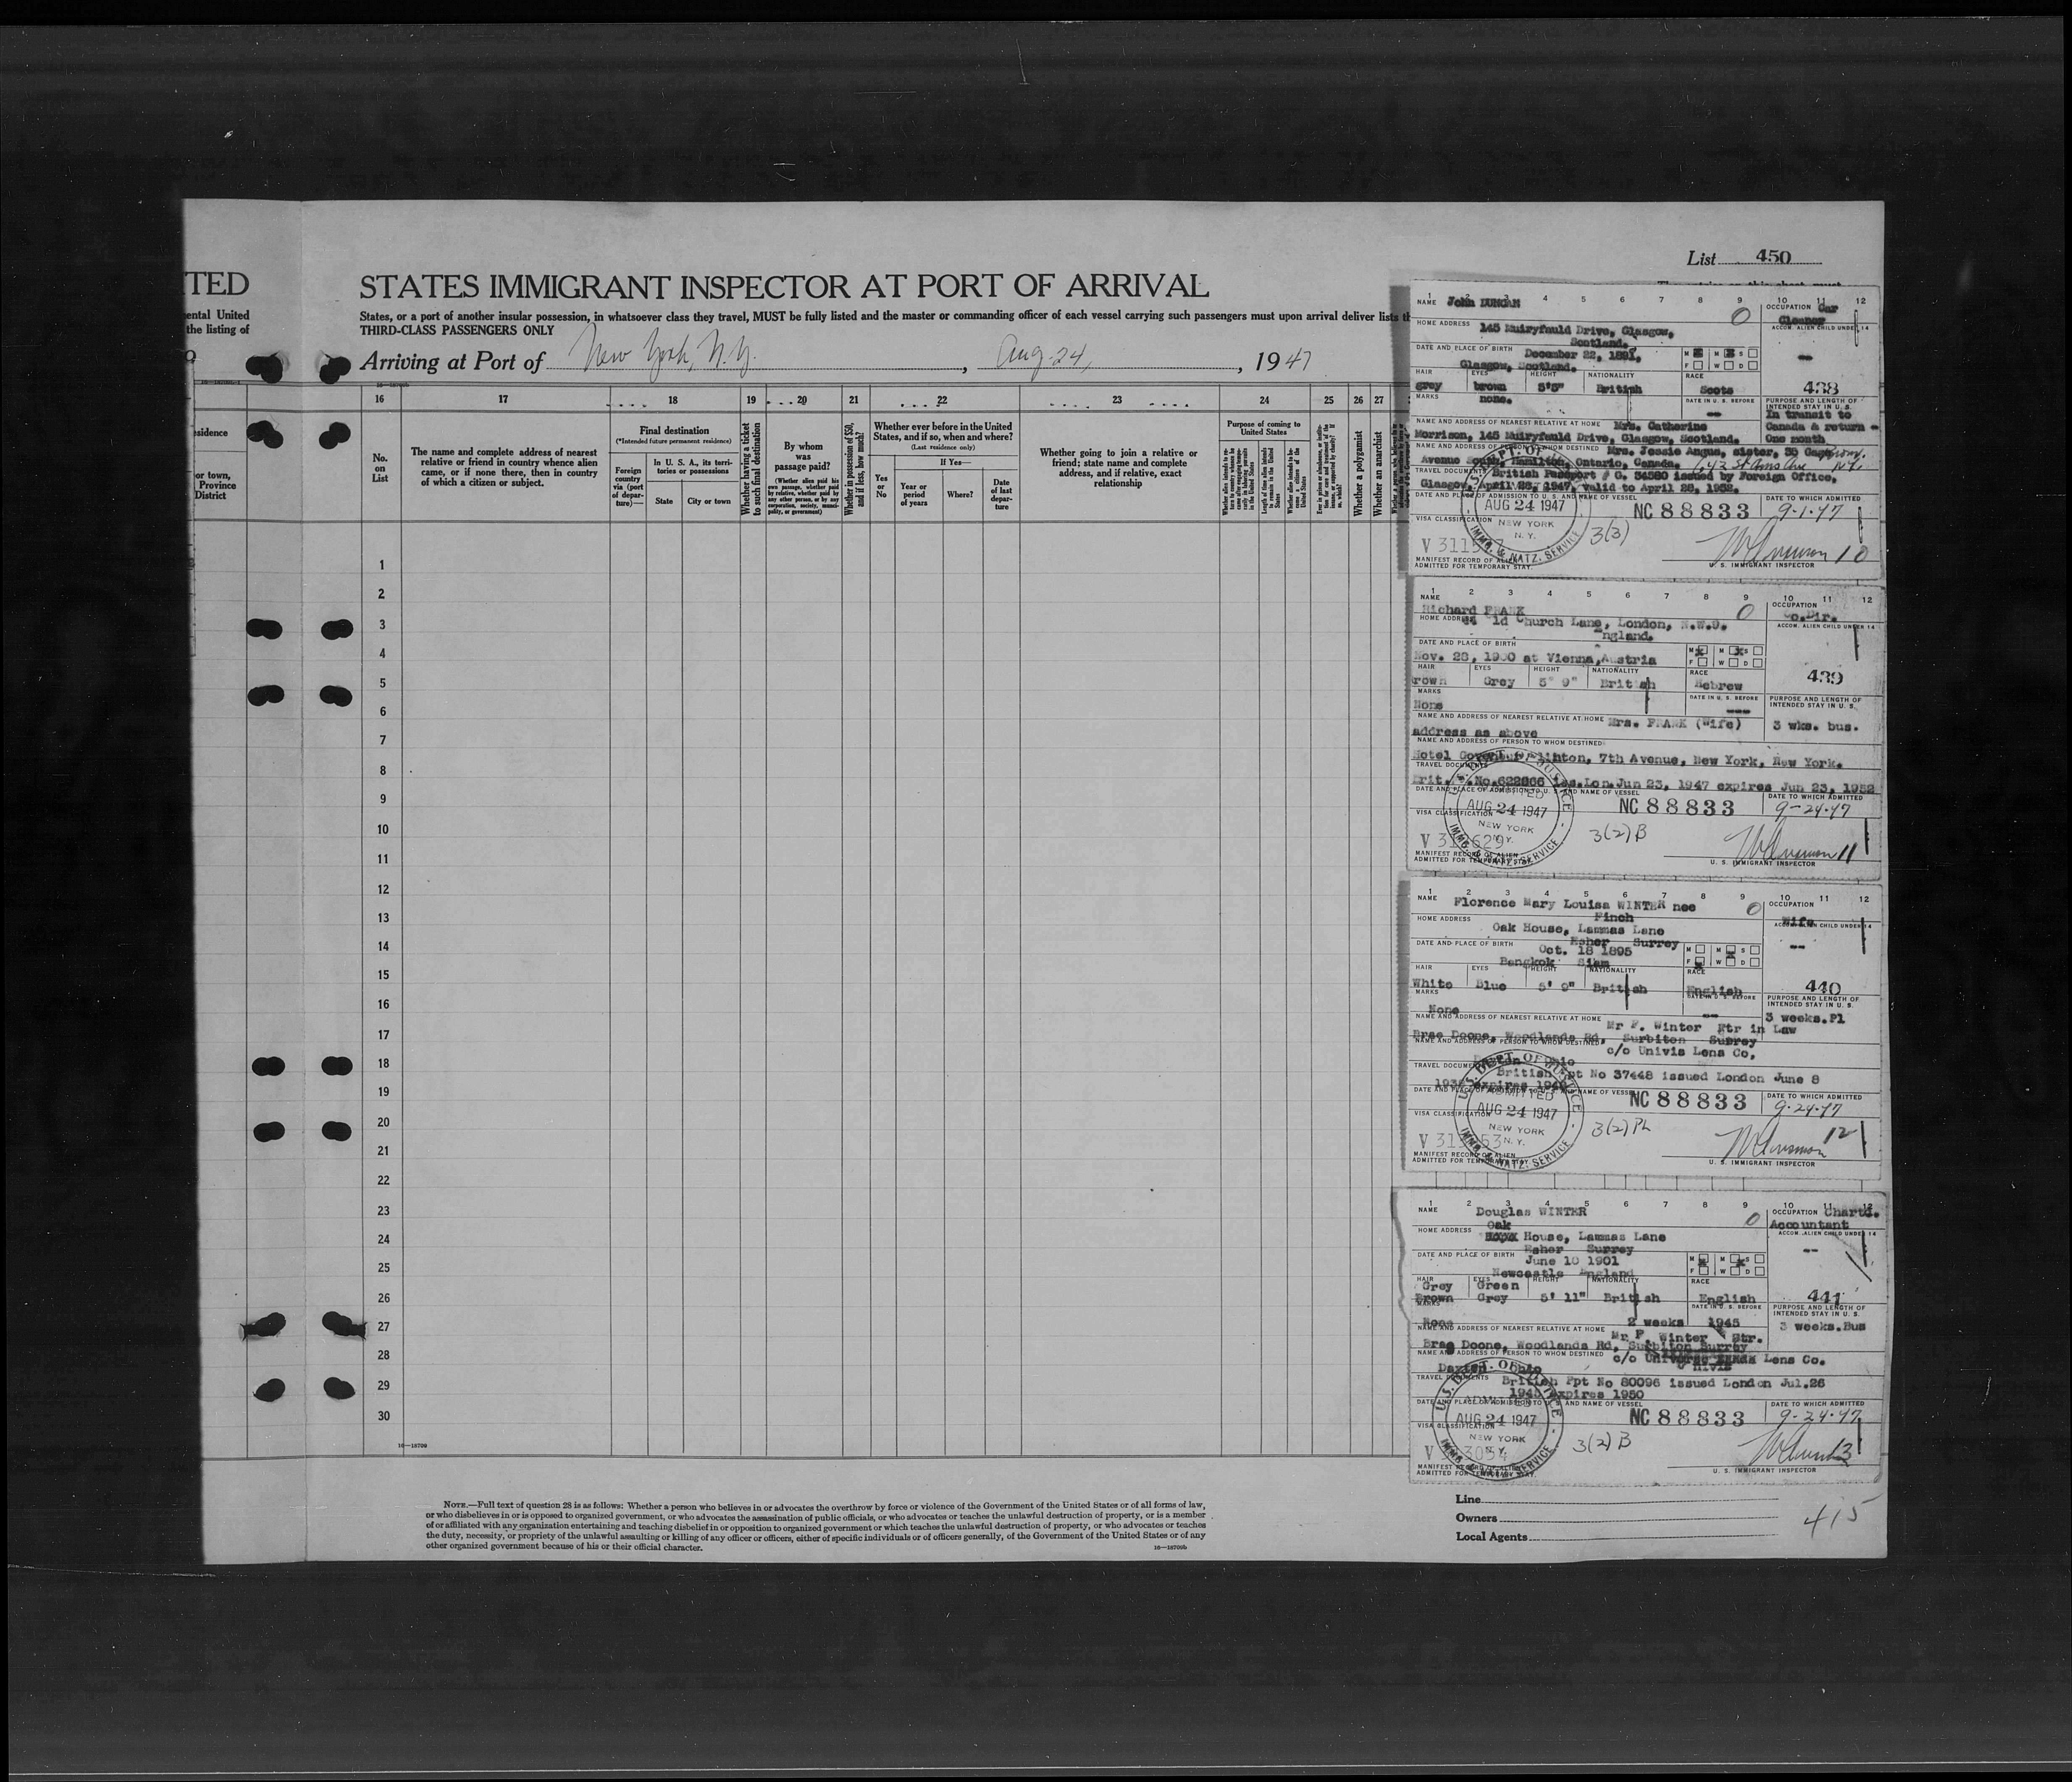 List 450
TED STATES IMMIGRANT INSPECTOR AT PORT OF ARRIVAL
ental United States, or a port of another insular possession, in whatsoever class they travel, MUST be fully listed and the master or commanding officer of each vessel carrying such passengers must upon arrival deliver lists th
the listing of THIRD-CLASS PASSENGERS ONLY
Arriving at Port of New York, N.Y. , Aug. 24, , 1947
16 17 18 19 20 21 22 23 24 25 26 27
esidence
or town,
Province
District
No. on List
The name and complete address of nearest
relative or friend in country whence alien
came, or if none there, then in country
of which a citizen or subject.
Final destination
(*Intended future permanent residence)
Foreign country via (port of departure)—
In U. S. A., its territories or possessions
State
City or town
Whether having a ticket to such final destination
By whom was passage paid?
(Whether alien paid his own passage, whether paid by relative, whether paid by any other person, or by any corporation, society, municipality, or government)
Whether in possession of $50, and if less, how much?
Whether ever before in the United States, and if so, when and where?
(Last residence only)
Yes or No
If Yes—
Year or period of years
Where?
Date of last departure
Whether going to join a relative or
friend; state name and complete
address, and if relative, exact
relationship
Purpose of coming to United States
Whether a polygamist
Whether an anarchist
1
2
3
4
5
6
7
8
9
10
11
12
13
14
15
16
17
18
19
20
21
22
23
24
25
26
27
28
29
30
16—18709
NOTE.—Full text of question 28 is as follows: Whether a person who believes in or advocates the overthrow by force or violence of the Government of the United States or of all forms of law,
or who disbelieves in or is opposed to organized government, or who advocates the assassination of public officials, or who advocates or teaches the unlawful destruction of property, or is a member
of or affiliated with any organization entertaining and teaching disbelief in or opposition to organized government or which teaches the unlawful destruction of property, or who advocates or teaches
the duty, necessity, or propriety of the unlawful assaulting or killing of any officer or officers, either of specific individuals or of officers generally, of the Government of the United States or of any
other organized government because of his or their official character.
16—18709b
1 2 3 4 5 6 7 8 9 10 11 12
NAME John DUNCAN
OCCUPATION Car Cleaner
HOME ADDRESS 145 Muiryfauld Drive, Glasgow,
Scotland.
ACCOM. ALIEN CHILD UNDER 14
--
DATE AND PLACE OF BIRTH December 22, 1891,
Glasgow, Scotland.
M M S
F W D
HAIR EYES HEIGHT NATIONALITY RACE
grey brown 5'5" British Scots
438
MARKS none.
DATE IN U. S. BEFORE --
PURPOSE AND LENGTH OF INTENDED STAY IN U. S.
In transit to
Canada & return -
One month
NAME AND ADDRESS OF NEAREST RELATIVE AT HOME Mrs. Catherine
Morrison, 145 Muiryfauld Drive, Glasgow, Scotland.
NAME AND ADDRESS OF PERSON TO WHOM DESTINED Mrs. Jessie Angus, sister, 35
Avenue South, Hamilton, Ontario, Canada.
TRAVEL DOCUMENTS British Passport # G. 34580 issued by Foreign Office,
Glasgow, April 28, 1947, valid to April 28, 1952.
DATE AND PLACE OF ADMISSION TO U. S. AND NAME OF VESSEL
DATE TO WHICH ADMITTED
AUG 24 1947
NEW YORK
N. Y.
IMMG. & NATZ. SERVICE
NC 88833
9-1-47
VISA CLASSIFICATION
3(3)
MANIFEST RECORD OF ALIEN
ADMITTED FOR TEMPORARY STAY.
10
U. S. IMMIGRANT INSPECTOR
1 2 3 4 5 6 7 8 9 10 11 12
NAME Richard FRANK
OCCUPATION Co.Dir.
HOME ADDRESS Church Lane, London, N.W.9.
England.
ACCOM. ALIEN CHILD UNDER 14
DATE AND PLACE OF BIRTH
Nov. 28, 1900 at Vienna, Austria
M M S
F W D
HAIR EYES HEIGHT NATIONALITY RACE
rown Grey 5' 9" British Hebrew
439
MARKS None
DATE IN U. S. BEFORE ---
PURPOSE AND LENGTH OF INTENDED STAY IN U. S.
NAME AND ADDRESS OF NEAREST RELATIVE AT HOME Mrs. FRANK (Wife)
3 wks. bus.
address as above
NAME AND ADDRESS OF PERSON TO WHOM DESTINED
Hotel Governor Clinton, 7th Avenue, New York, New York.
TRAVEL DOCUMENTS
Brit. P.No.622866 iss.Lon.Jun 23, 1947 expires Jun 23, 1952
DATE AND PLACE OF ADMISSION TO U. S. AND NAME OF VESSEL
DATE TO WHICH ADMITTED
AUG 24 1947
NEW YORK
NC 88833
9-24-47
VISA CLASSIFICATION
3(2)B
MANIFEST RECORD OF ALIEN
ADMITTED FOR TEMPORARY STAY.
11
U. S. IMMIGRANT INSPECTOR
1 2 3 4 5 6 7 8 9 10 11 12
NAME Florence Mary Louisa WINTER nee
Finch
OCCUPATION Wife
HOME ADDRESS Oak House, Lammas Lane
Esher Surrey
ACCOM. ALIEN CHILD UNDER 14
--
DATE AND PLACE OF BIRTH Oct. 18 1895
Bengkok Siam
M M S
F W D
HAIR EYES HEIGHT NATIONALITY RACE
White Blue 5' 9" British English
440
MARKS None
DATE IN U. S. BEFORE --
PURPOSE AND LENGTH OF INTENDED STAY IN U. S.
3 weeks.Pl
NAME AND ADDRESS OF NEAREST RELATIVE AT HOME Mr F. Winter Ftr in Law
Brae Doone, Woodlands Rd, Surbiton Surrey
NAME AND ADDRESS OF PERSON TO WHOM DESTINED c/o Univis Lens Co,
Dayton Ohio
TRAVEL DOCUMENTS British Ppt No 37448 issued London June 8
DATE AND PLACE OF ADMISSION TO U. S. AND NAME OF VESSEL
DATE TO WHICH ADMITTED
ADMITTED
AUG 24 1947
NEW YORK
N. Y.
NC 88833
9-24-47
VISA CLASSIFICATION
3(2)PL
MANIFEST RECORD OF ALIEN
ADMITTED FOR TEMPORARY STAY.
12
U. S. IMMIGRANT INSPECTOR
1 2 3 4 5 6 7 8 9 10 11 12
NAME Douglas WINTER
OCCUPATION Chartd.
Accountant
HOME ADDRESS Oak
House, Lammas Lane
Esher Surrey
ACCOM. ALIEN CHILD UNDER 14
--
DATE AND PLACE OF BIRTH June 10 1901
Newcastle England
M M S
F W D
HAIR EYES HEIGHT NATIONALITY RACE
Grey Green
Brown Grey 5' 11" British English
441
MARKS None
DATE IN U. S. BEFORE
2 weeks 1945
PURPOSE AND LENGTH OF INTENDED STAY IN U. S.
3 weeks.Bus
NAME AND ADDRESS OF NEAREST RELATIVE AT HOME Mr F. Winter Ftr.
Brae Doone, Woodlands Rd, Surbiton Surrey
NAME AND ADDRESS OF PERSON TO WHOM DESTINED c/o Lens Co.
Dayton Ohio
TRAVEL DOCUMENTS British Ppt No 80096 issued London Jul.26
1945 expires 1950
DATE AND PLACE OF ADMISSION TO U. S. AND NAME OF VESSEL
DATE TO WHICH ADMITTED
ADMITTED
AUG 24 1947
NEW YORK
N. Y.
NC 88833
9-24-47
VISA CLASSIFICATION
3(2)B
MANIFEST RECORD OF ALIEN
ADMITTED FOR TEMPORARY STAY.
13
U. S. IMMIGRANT INSPECTOR
Line
Owners
Local Agents
415